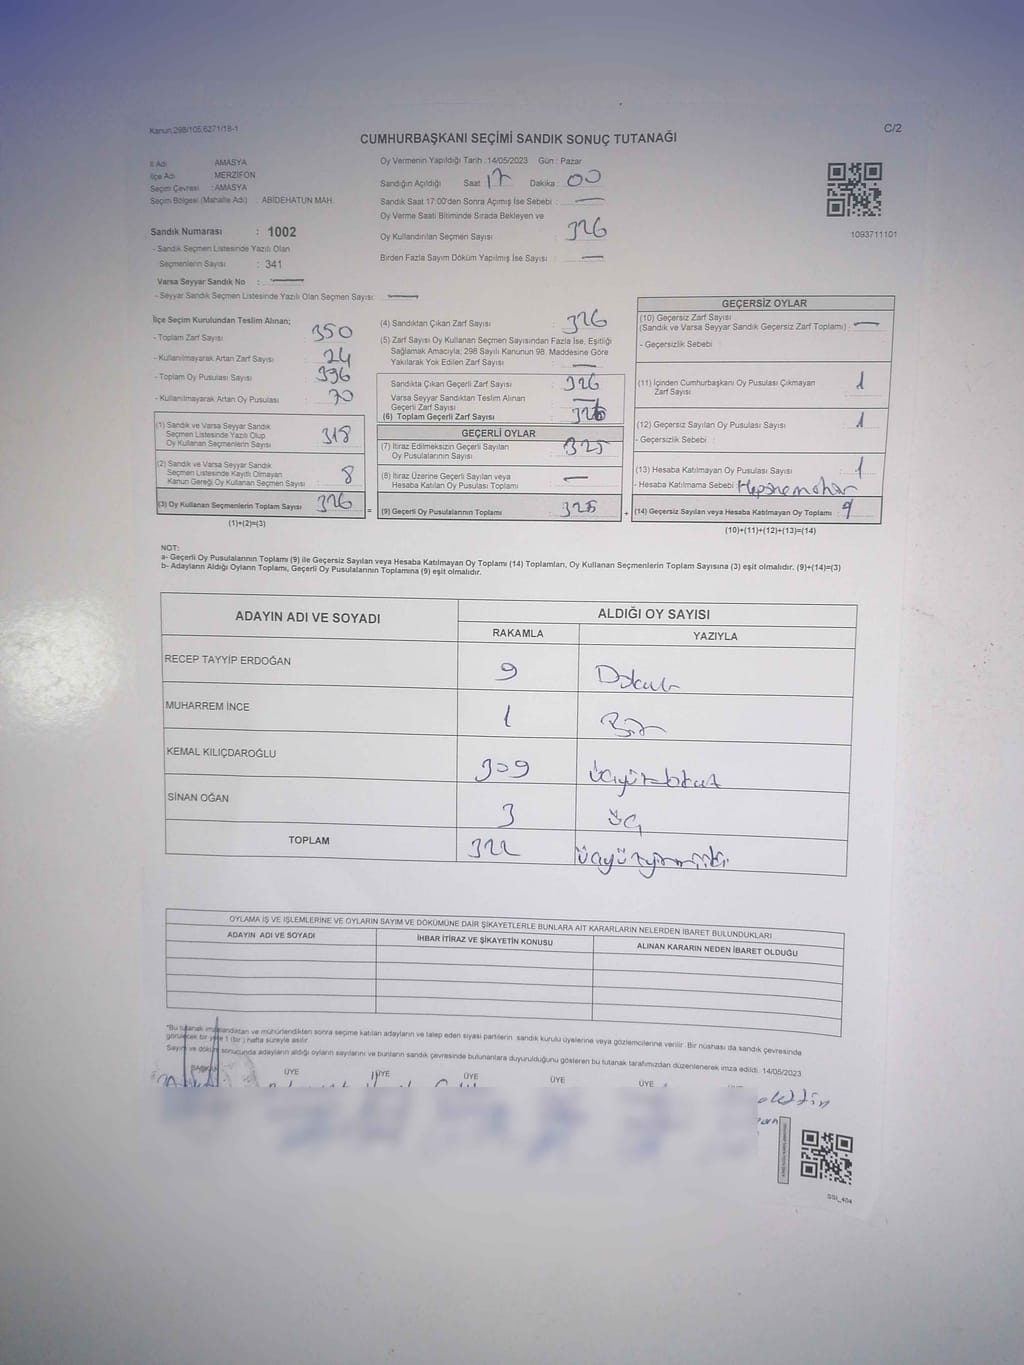 Kanun:298/105,6271/18-1
C/2
CUMHURBAŞKANI SEÇİMİ SANDIK SONUÇ TUTANAĞI
İl Adı : AMASYA
İlçe Adı : MERZİFON
Seçim Çevresi : AMASYA
Seçim Bölgesi (Mahalle Adı) : ABİDEHATUN MAH.
Sandık Numarası : 1002
- Sandık Seçmen Listesinde Yazılı Olan
Seçmenlerin Sayısı : 341
Varsa Seyyar Sandık No : —
- Seyyar Sandık Seçmen Listesinde Yazılı Olan Seçmen Sayısı: —
Oy Vermenin Yapıldığı Tarih :14/05/2023 Gün : Pazar
Sandığın Açıldığı Saat 17 Dakika : 00
Sandık Saat 17:00'den Sonra Açımış İse Sebebi : —
Oy Verme Saati Bitiminde Sırada Bekleyen ve
Oy Kullandırılan Seçmen Sayısı : 326
Birden Fazla Sayım Döküm Yapılmış İse Sayısı : —
1093711101
İlçe Seçim Kurulundan Teslim Alınan;
- Toplam Zarf Sayısı : 350
- Kullanılmayarak Artan Zarf Sayısı : 24
- Toplam Oy Pusulası Sayısı : 396
- Kullanılmayarak Artan Oy Pusulası : 70
(1) Sandık ve Varsa Seyyar Sandık
Seçmen Listesinde Yazılı Olup
Oy Kullanan Seçmenlerin Sayısı : 318
(2) Sandık ve Varsa Seyyar Sandık
Seçmen Listesinde Kayıtlı Olmayan
Kanun Gereği Oy Kullanan Seçmen Sayısı : 8
(3) Oy Kullanan Seçmenlerin Toplam Sayısı : 326
(1)+(2)=(3)
=
(4) Sandıktan Çıkan Zarf Sayısı : 326
(5) Zarf Sayısı Oy Kullanan Seçmen Sayısından Fazla İse, Eşitliği
Sağlamak Amacıyla; 298 Sayılı Kanunun 98. Maddesine Göre
Yakılarak Yok Edilen Zarf Sayısı : —
Sandıkta Çıkan Geçerli Zarf Sayısı : 326
Varsa Seyyar Sandıktan Teslim Alınan
Geçerli Zarf Sayısı : —
(6) Toplam Geçerli Zarf Sayısı : 326
GEÇERLİ OYLAR
(7) İtiraz Edilmeksizin Geçerli Sayılan
Oy Pusulalarının Sayısı : 325
(8) İtiraz Üzerine Geçerli Sayılan veya
Hesaba Katılan Oy Pusulası Toplamı : —
(9) Geçerli Oy Pusulalarının Toplamı : 325
+
GEÇERSİZ OYLAR
(10) Geçersiz Zarf Sayısı
(Sandık ve Varsa Seyyar Sandık Geçersiz Zarf Toplamı) : —
- Geçersizlik Sebebi :
(11) İçinden Cumhurbaşkanı Oy Pusulası Çıkmayan
Zarf Sayısı : 1
(12) Geçersiz Sayılan Oy Pusulası Sayısı : 1
- Geçersizlik Sebebi :
(13) Hesaba Katılmayan Oy Pusulası Sayısı : 1
- Hesaba Katılmama Sebebi :
(14) Geçersiz Sayılan veya Hesaba Katılmayan Oy Toplamı :
(10)+(11)+(12)+(13)=(14)
NOT:
a- Geçerli Oy Pusulalarının Toplamı (9) ile Geçersiz Sayılan veya Hesaba Katılmayan Oy Toplamı (14) Toplamları, Oy Kullanan Seçmenlerin Toplam Sayısına (3) eşit olmalıdır. (9)+(14)=(3)
b- Adayların Aldığı Oyların Toplamı, Geçerli Oy Pusulalarının Toplamına (9) eşit olmalıdır.
ADAYIN ADI VE SOYADI ALDIĞI OY SAYISI
RAKAMLA YAZIYLA
RECEP TAYYİP ERDOĞAN 9 Dokuz
MUHARREM İNCE 1 Bir
KEMAL KILIÇDAROĞLU 309 üçyüzdokuz
SİNAN OĞAN 3 üç
TOPLAM 322 üçyüzyirmiiki
OYLAMA İŞ VE İŞLEMLERİNE VE OYLARIN SAYIM VE DÖKÜMÜNE DAİR ŞİKAYETLERLE BUNLARA AİT KARARLARIN NELERDEN İBARET BULUNDUKLARI
ADAYIN ADI VE SOYADI İHBAR İTİRAZ VE ŞİKAYETİN KONUSU ALINAN KARARIN NEDEN İBARET OLDUĞU
"Bu tutanak imzalandıktan ve mühürlendikten sonra seçime katılan adayların ve talep eden siyasi partilerin sandık kurulu üyelerine veya gözlemcilerine verilir. Bir nüshası da sandık çevresinde
görülecek bir yere 1 (bir) hafta süreyle asılır.
Sayım ve döküm sonucunda adayların aldığı oyların sayılarını ve bunların sandık çevresinde bulunanlara duyurulduğunu gösteren bu tutanak tarafımızdan düzenlenerek imza edildi. 14/05/2023
BAŞKAN ÜYE ÜYE ÜYE ÜYE ÜYE
SSİ_404